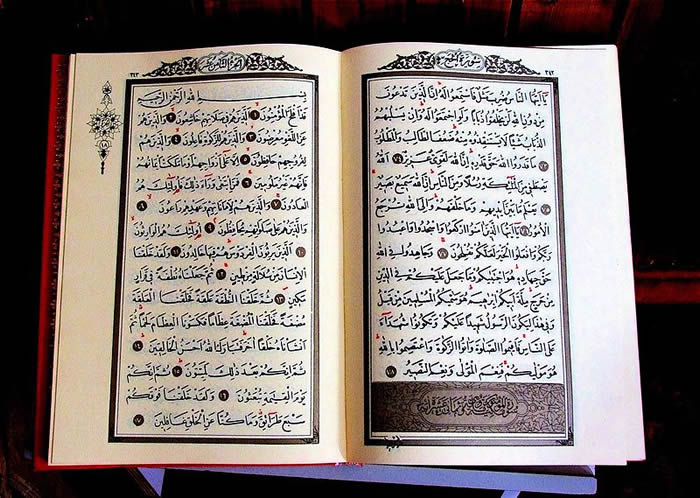 ٣٤٢
سُورَةُ الْحَجِّ
يَٓا اَيُّهَا النَّاسُ ضُرِبَ مَثَلٌ فَاسْتَمِعُوا لَهُ اِنَّ الَّذِينَ تَدْعُونَ
مِنْ دُونِ اللّٰهِ لَنْ يَخْلُقُوا ذُبَابًا وَلَوِ اجْتَمَعُوا لَهُ وَاِنْ يَسْلُبْهُمُ
الذُّبَابُ شَيْـًٔا لَا يَسْتَنْقِذُوهُ مِنْهُ ضَعُفَ الطَّالِبُ وَالْمَطْلُوبُ
٧٣ مَا قَدَرُوا اللّٰهَ حَقَّ قَدْرِهِ اِنَّ اللّٰهَ لَقَوِيٌّ عَزِيزٌ ٧٤ اَللّٰهُ
يَصْطَفِي مِنَ الْمَلٰٓئِكَةِ رُسُلًا وَمِنَ النَّاسِ اِنَّ اللّٰهَ سَمِيعٌ بَصِيرٌ
٧٥ يَعْلَمُ مَا بَيْنَ اَيْدِيهِمْ وَمَا خَلْفَهُمْ وَاِلَى اللّٰهِ تُرْجَعُ
الْاُمُورُ ٧٦ يَٓا اَيُّهَا الَّذِينَ اٰمَنُوا ارْكَعُوا وَاسْجُدُوا وَاعْبُدُوا
رَبَّكُمْ وَافْعَلُوا الْخَيْرَ لَعَلَّكُمْ تُفْلِحُونَ ٧٧ وَجَاهِدُوا فِي اللّٰهِ
حَقَّ جِهَادِهِ هُوَ اجْتَبٰيكُمْ وَمَا جَعَلَ عَلَيْكُمْ فِي الدِّينِ
مِنْ حَرَجٍ مِلَّةَ اَبِيكُمْ اِبْرٰهِيمَ هُوَ سَمّٰيكُمُ الْمُسْلِمِينَ مِنْ قَبْلُ
وَفِي هٰذَا لِيَكُونَ الرَّسُولُ شَهِيدًا عَلَيْكُمْ وَتَكُونُوا شُهَدَٓاءَ
عَلَى النَّاسِ فَاَقِيمُوا الصَّلٰوةَ وَاٰتُوا الزَّكٰوةَ وَاعْتَصِمُوا بِاللّٰهِ
هُوَ مَوْلٰيكُمْ فَنِعْمَ الْمَوْلٰى وَنِعْمَ النَّصِيرُ ٧٨
٣٤٣
اَلْجُزْءُ الثَّامِنَ عَشَرَ
١٨
بِسْمِ اللّٰهِ الرَّحْمٰنِ الرَّحِيمِ
قَدْ اَفْلَحَ الْمُؤْمِنُونَ ١ اَلَّذِينَ هُمْ فِي صَلَاتِهِمْ خَاشِعُونَ ٢ وَالَّذِينَ هُمْ
عَنِ اللَّغْوِ مُعْرِضُونَ ٣ وَالَّذِينَ هُمْ لِلزَّكٰوةِ فَاعِلُونَ ٤ وَالَّذِينَ هُمْ
لِفُرُوجِهِمْ حَافِظُونَ ٥ اِلَّا عَلٰٓى اَزْوَاجِهِمْ اَوْ مَا مَلَكَتْ اَيْمَانُهُمْ
فَاِنَّهُمْ غَيْرُ مَلُومِينَ ٦ فَمَنِ ابْتَغٰى وَرَٓاءَ ذٰلِكَ فَاُو۬لٰٓئِكَ هُمُ
الْعَادُونَ ٧ وَالَّذِينَ هُمْ لِاَمَانَاتِهِمْ وَعَهْدِهِمْ رَاعُونَ ٨
وَالَّذِينَ هُمْ عَلٰى صَلَوَاتِهِمْ يُحَافِظُونَ ٩ اُو۬لٰٓئِكَ هُمُ الْوَارِثُونَ
١٠ اَلَّذِينَ يَرِثُونَ الْفِرْدَوْسَ هُمْ فِيهَا خَالِدُونَ ١١ وَلَقَدْ خَلَقْنَا
الْاِنْسَانَ مِنْ سُلَالَةٍ مِنْ طِينٍ ١٢ ثُمَّ جَعَلْنَاهُ نُطْفَةً فِي قَرَارٍ
مَكِينٍ ١٣ ثُمَّ خَلَقْنَا النُّطْفَةَ عَلَقَةً فَخَلَقْنَا الْعَلَقَةَ
مُضْغَةً فَخَلَقْنَا الْمُضْغَةَ عِظَامًا فَكَسَوْنَا الْعِظَامَ لَحْمًا ثُمَّ
اَنْشَأْنَاهُ خَلْقًا اٰخَرَ فَتَبَارَكَ اللّٰهُ اَحْسَنُ الْخَالِقِينَ ١٤
ثُمَّ اِنَّكُمْ بَعْدَ ذٰلِكَ لَمَيِّتُونَ ١٥ ثُمَّ اِنَّكُمْ
يَوْمَ الْقِيٰمَةِ تُبْعَثُونَ ١٦ وَلَقَدْ خَلَقْنَا فَوْقَكُمْ
سَبْعَ طَرَٓائِقَ وَمَا كُنَّا عَنِ الْخَلْقِ غَافِلِينَ ١٧